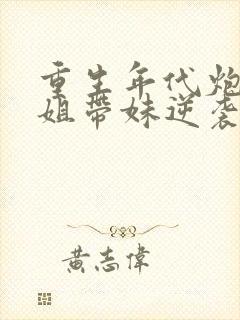 重生年代炮
姐带妹逆袭
黄志伟